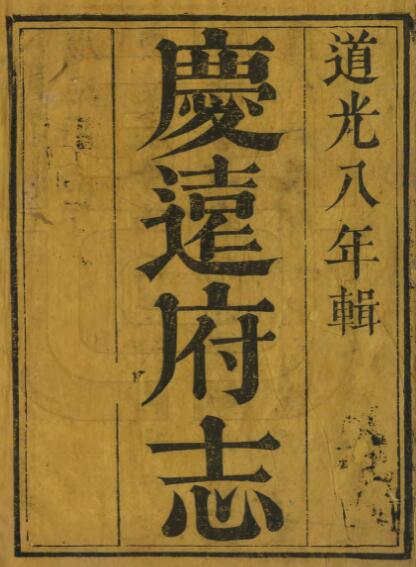 道光八年輯
慶遠府志